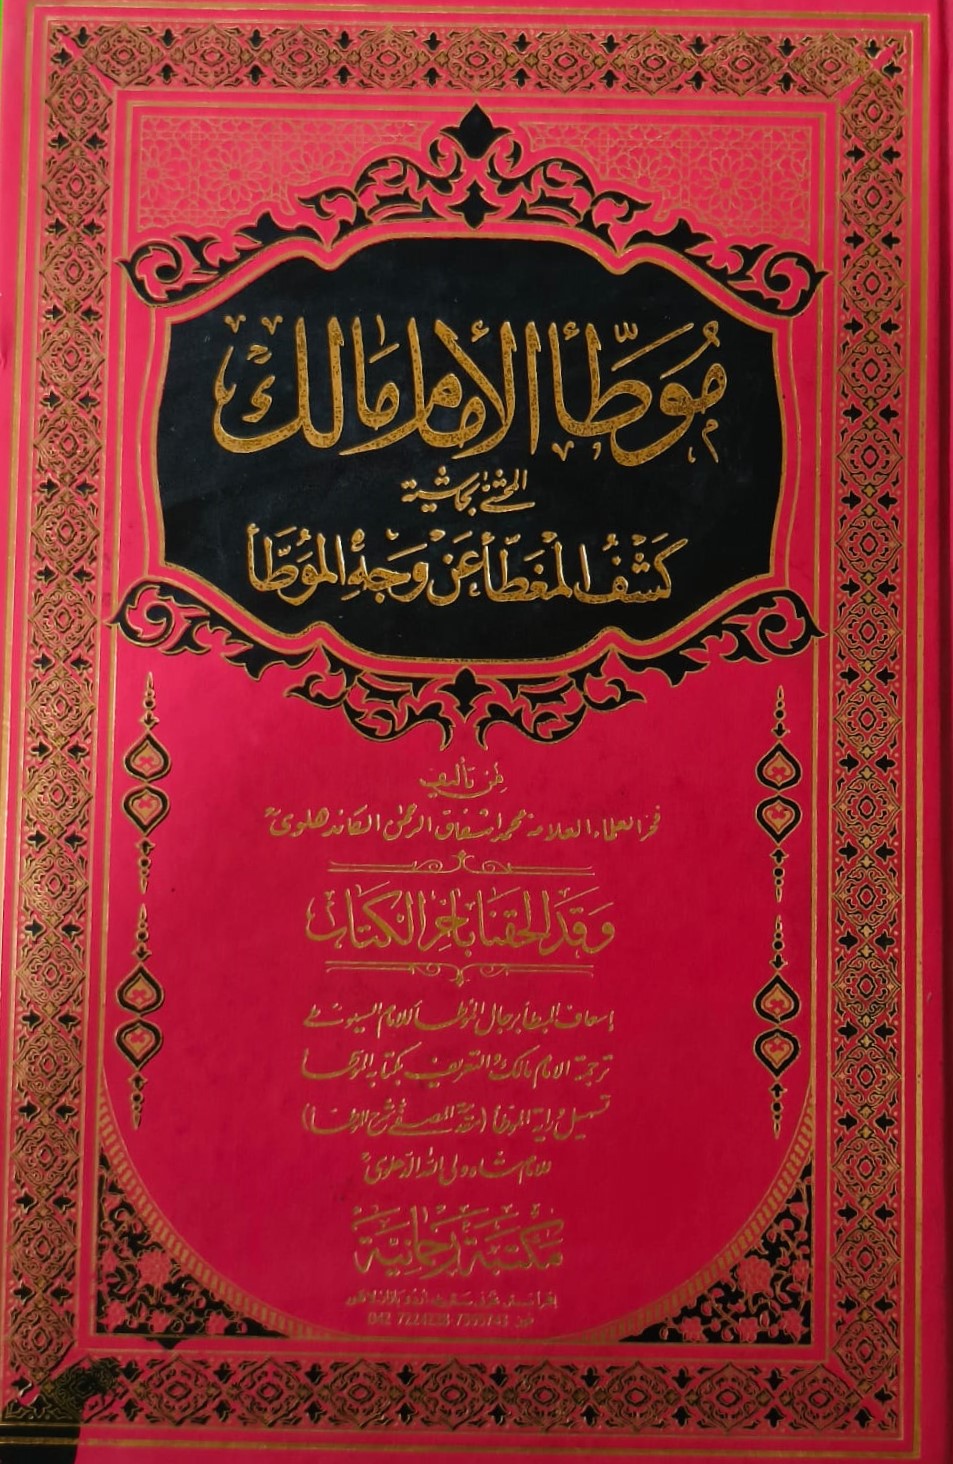 مُوَطَّأ الْإِمَامِ مَالِك
المحشّٰى بحاشية
كَشْفُ الْمُغَطَّأ عَنْ وَجْهِ الْمُوَطَّأ
لمن تأليف
فخر العلماء العلامة محمد اشفاق الرحمٰن الكاندهلوى
وَقَد الحقنا باٰخر الكتاب
إسعاف المبطأ برجال الموطأ للامام السيوطى
ترجمة الامام مالك والتعريف بكتابه الموطأ
تسهيل دراية الموطأ (مقدمة المصفى شرح الموطأ)
للامام شاه ولى الله الدهلوى
مَكتَبَة رَحمَانِيَّة
اقرأ سنٹر غزنی سٹریٹ اردو بازار لاہور
فون: 042 7224228-7355743